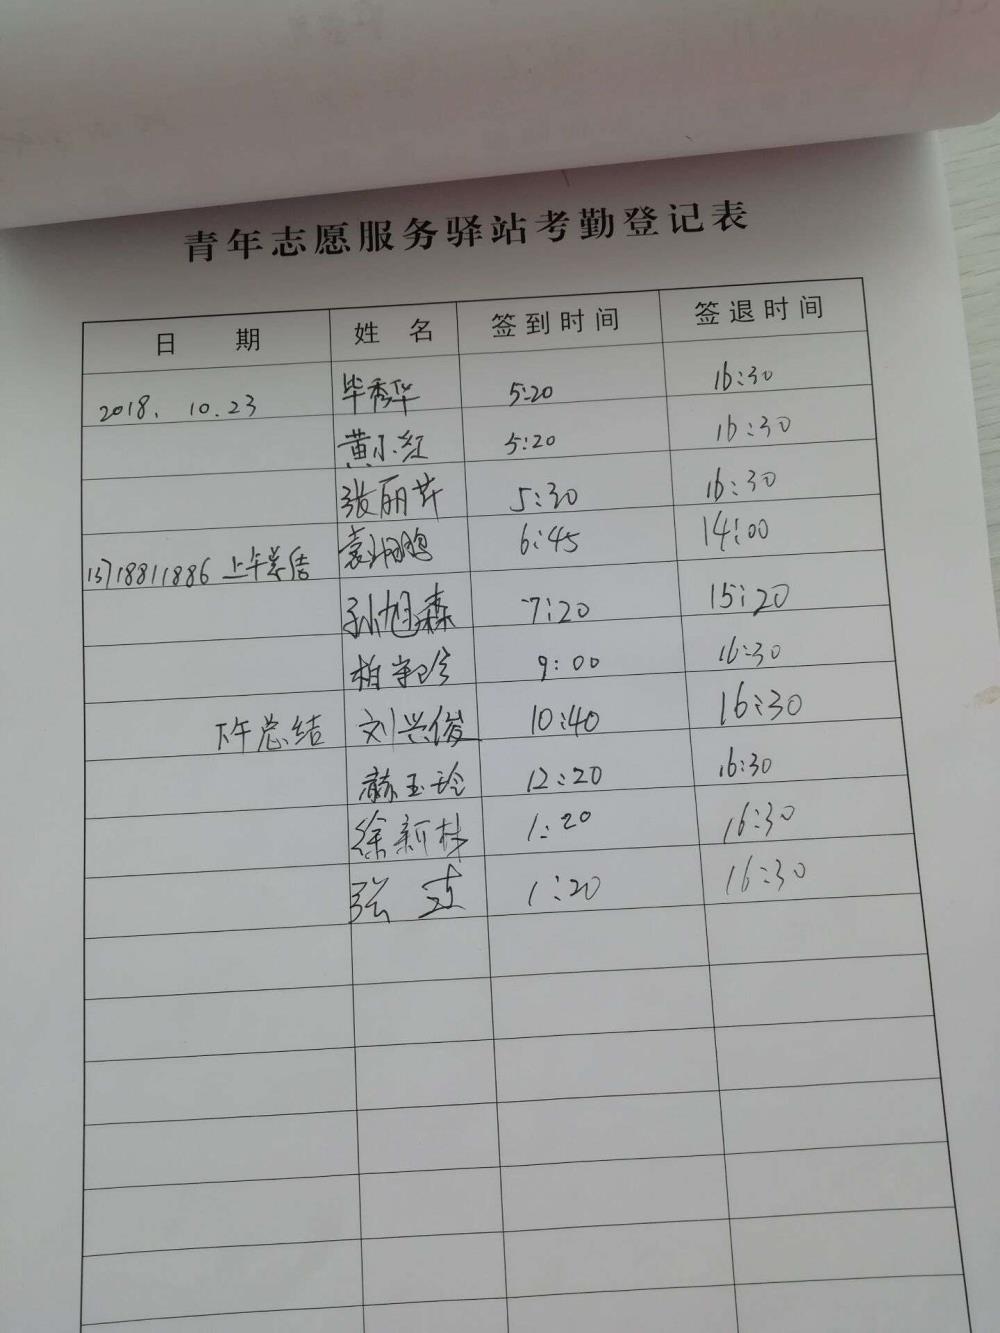 青年志愿服务驿站考勤登记表
日 期 姓 名 签到时间 签退时间
2018. 10.23 毕秀华 5:20 16:30
黄小红 5:20 16:30
张丽芹 5:30 16:30
13718811886 上午总结 袁鹏 6:45 14:00
孙旭森 7:20 15:20
柏 9:00 16:30
下午总结 刘兴俊 10:40 16:30
赫玉玲 12:20 16:30
徐新林 1:20 16:30
张 1:20 16:30